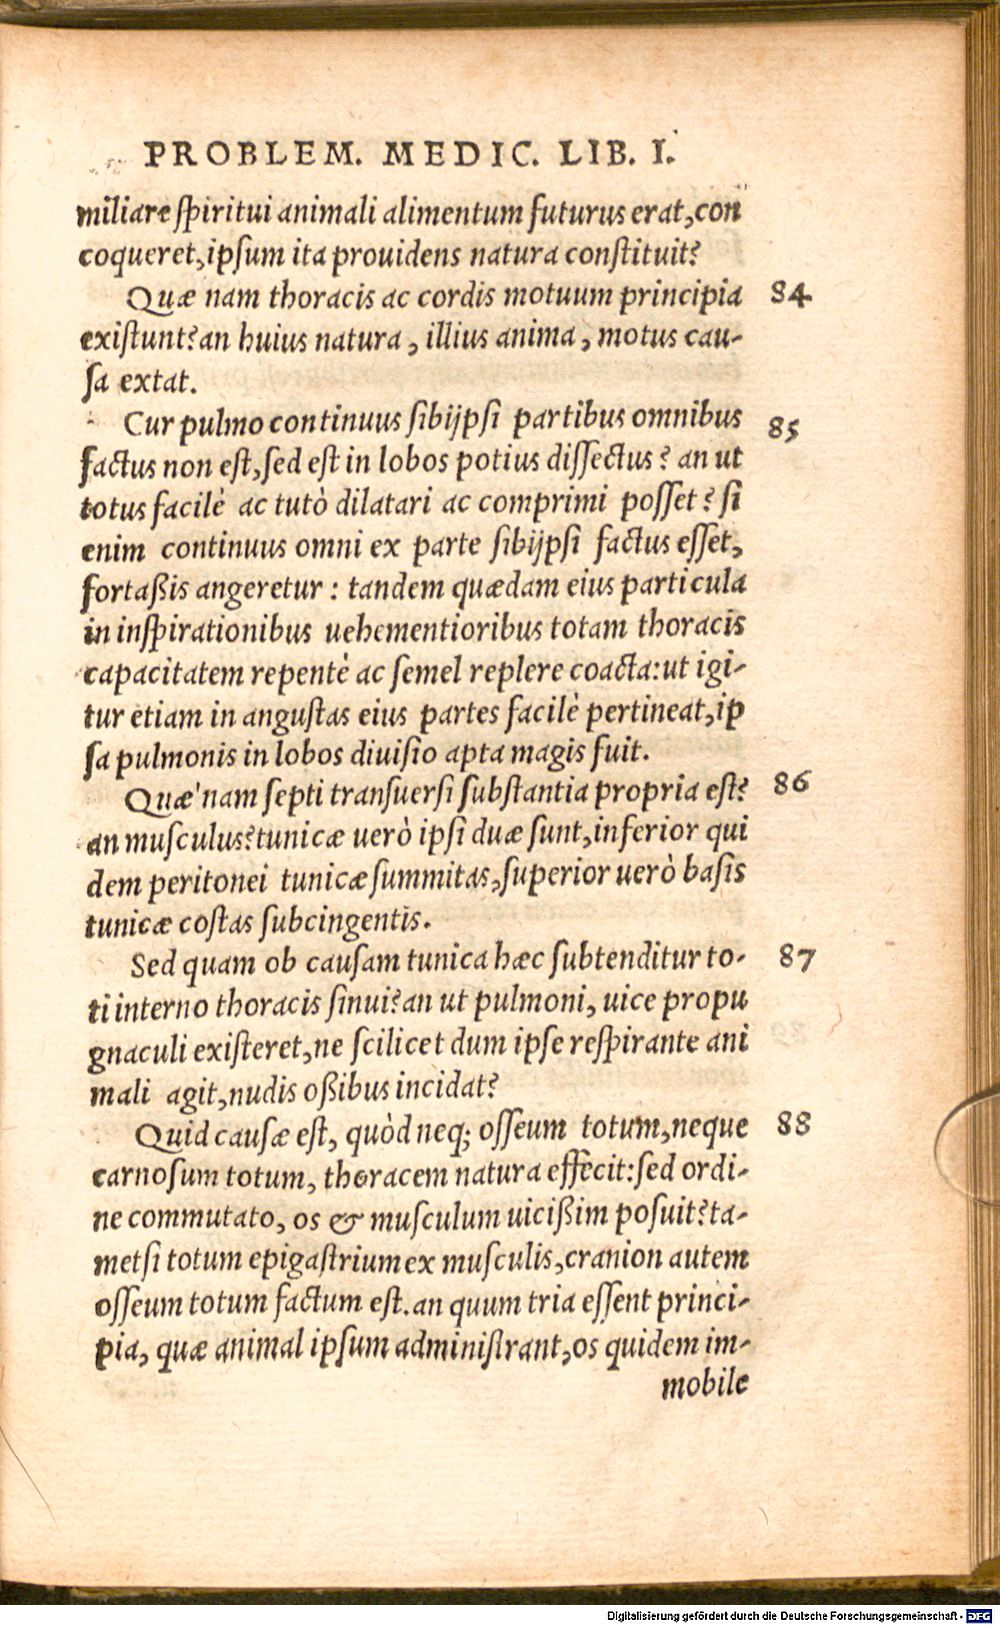 PROBLEM. MEDIC. LIB. I.
miliare ſpiritui animali alimentum futurus erat, con
coqueret, ipſum ita prouidens natura conſtituit?
Quæ nam thoracis ac cordis motuum principia 84
exiſtunt? an huius natura, illius anima, motus cau-
ſa extat.
Cur pulmo continuus ſibijpſi partibus omnibus 85
factus non eſt, ſed eſt in lobos potius diſſectus? an ut
totus facilè ac tutò dilatari ac comprimi poſſet? ſi
enim continuus omni ex parte ſibijpſi factus eſſet,
fortaßis angeretur: tandem quædam eius particula
in inſpirationibus uehementioribus totam thoracis
capacitatem repentè ac ſemel replere coacta: ut igi-
tur etiam in anguſtas eius partes facilè pertineat, ip
ſa pulmonis in lobos diuiſio apta magis fuit.
Quæ'nam ſepti tranſuerſi ſubſtantia propria eſt? 86
an muſculus? tunicæ uerò ipſi duæ ſunt, inferior qui
dem peritonei tunicæ ſummitas, ſuperior uerò baſis
tunicæ coſtas ſubcingentis.
Sed quam ob cauſam tunica hæc ſubtenditur to- 87
ti interno thoracis ſinui? an ut pulmoni, uice propu
gnaculi exiſteret, ne ſcilicet dum ipſe reſpirante ani
mali agit, nudis oßibus incidat?
Quid cauſæ eſt, quòd neq; oſſeum totum, neque 88
carnoſum totum, thoracem natura effecit: ſed ordi-
ne commutato, os & muſculum uicißim poſuit? ta-
metſi totum epigaſtrium ex muſculis, cranion autem
oſſeum totum factum eſt. an quum tria eſſent princi-
pia, quæ animal ipſum adminiſtrant, os quidem im-
mobile
Digitalisierung gefördert durch die Deutsche Forschungsgemeinschaft - DFG